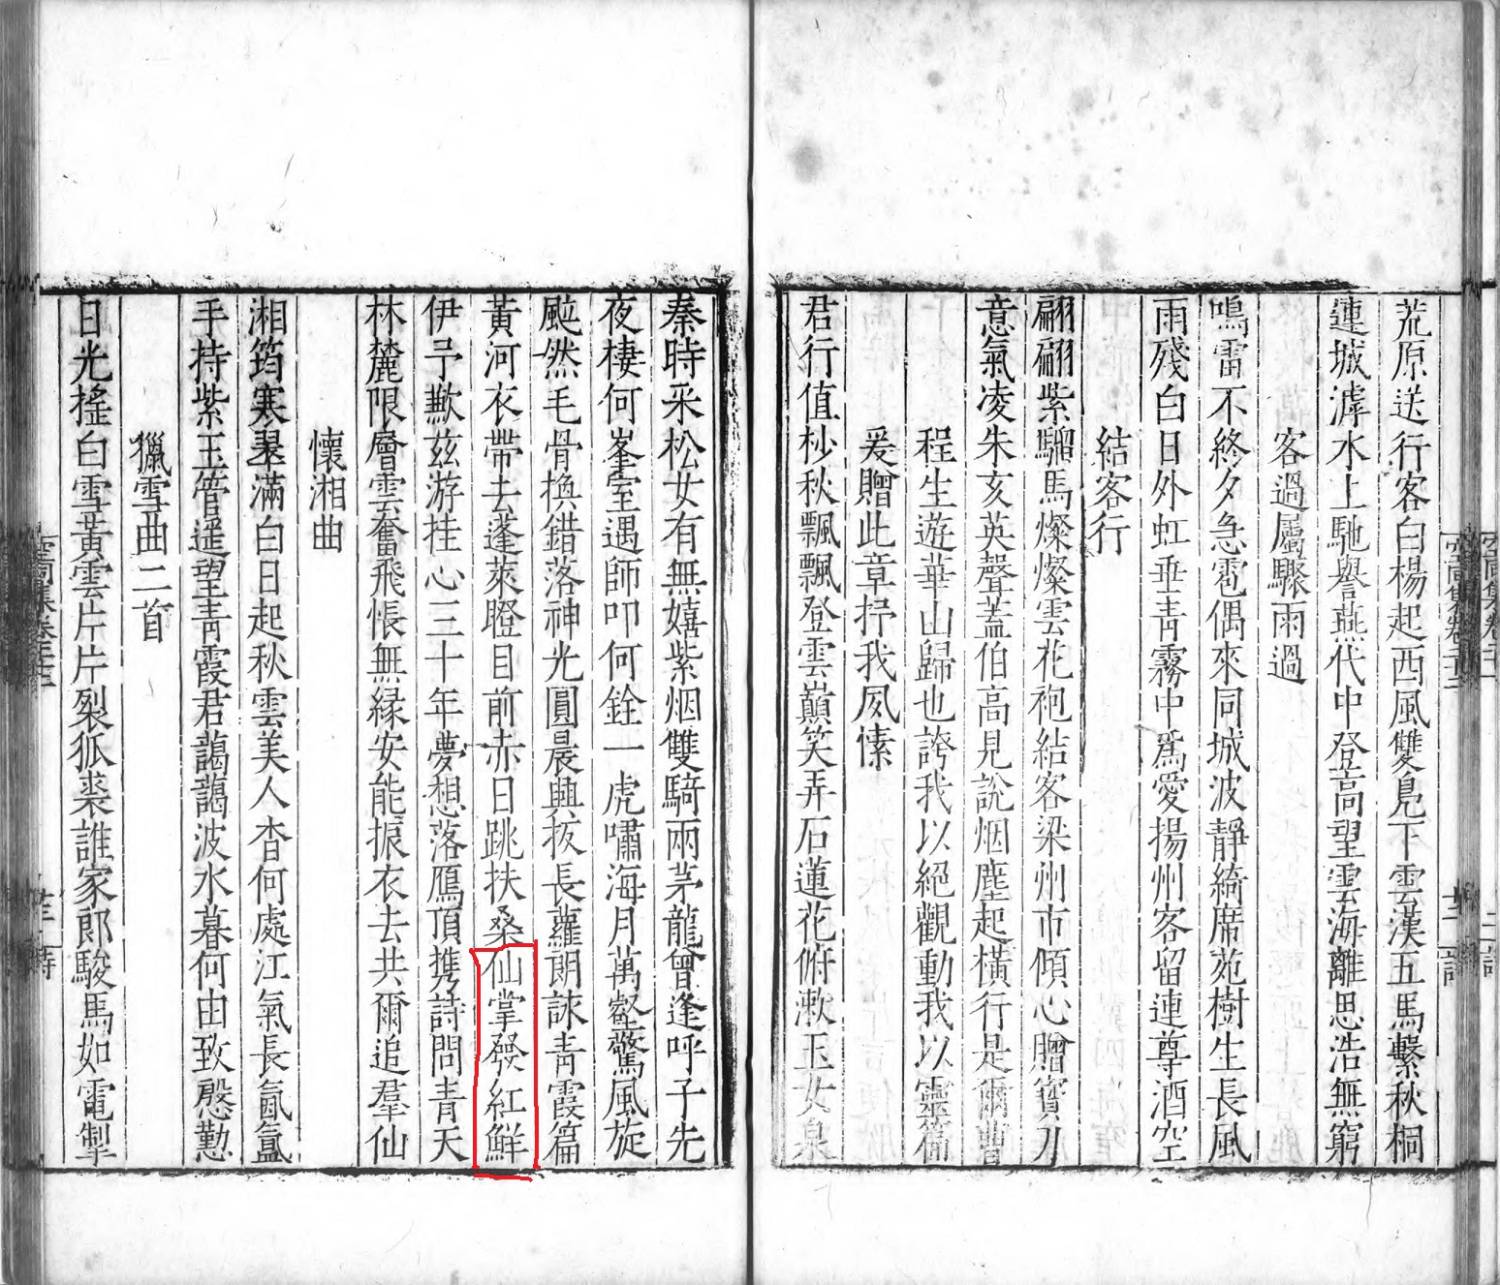 荒原送行客白楊起西風雙鳧下雲漢五馬繫秋桐
連城滹水上馳譽燕代中登高望雲海離思浩無窮
客過屬驟雨過
鳴雷不終夕急雹偶來同城波靜綺席苑樹生長風
雨殘白日外虹垂青霧中爲愛揚州客留連尊酒空
結客行
翩翩紫騮馬燦燦雲花袍結客梁州市傾心贈寶刀
意氣凌朱亥英聲蓋伯高見說烟塵起橫行是爾曹
程生遊華山歸也誇我以絕觀動我以靈篇
爰贈此章抒我夙愫
君行值杪秋飄飄登雲巔笑弄石蓮花俯漱玉女泉
秦時采松女有無嬉紫烟雙騎兩茅龍曾逢呼子先
夜棲何峯室遇師叩何銓一虎嘯海月萬壑驚風旋
颭然毛骨換錯落神光圓晨興拔長蘿朗誦青霞篇
黃河衣帶去蓬萊瞪目前赤日跳扶桑仙掌發紅鮮
伊予歎茲游挂心三十年夢想落鴈頂携詩問青天
林麓限層雲奮飛悵無緣安能振衣去共爾追羣仙
懷湘曲
湘筠寒翠滿白日起秋雲美人杳何處江氣長氤氳
手持紫玉管遥望青霞君藹藹波水暮何由致慇懃
獵雪曲二首
日光搖白雪黃雲片片裂狐裘誰家郎駿馬如電掣